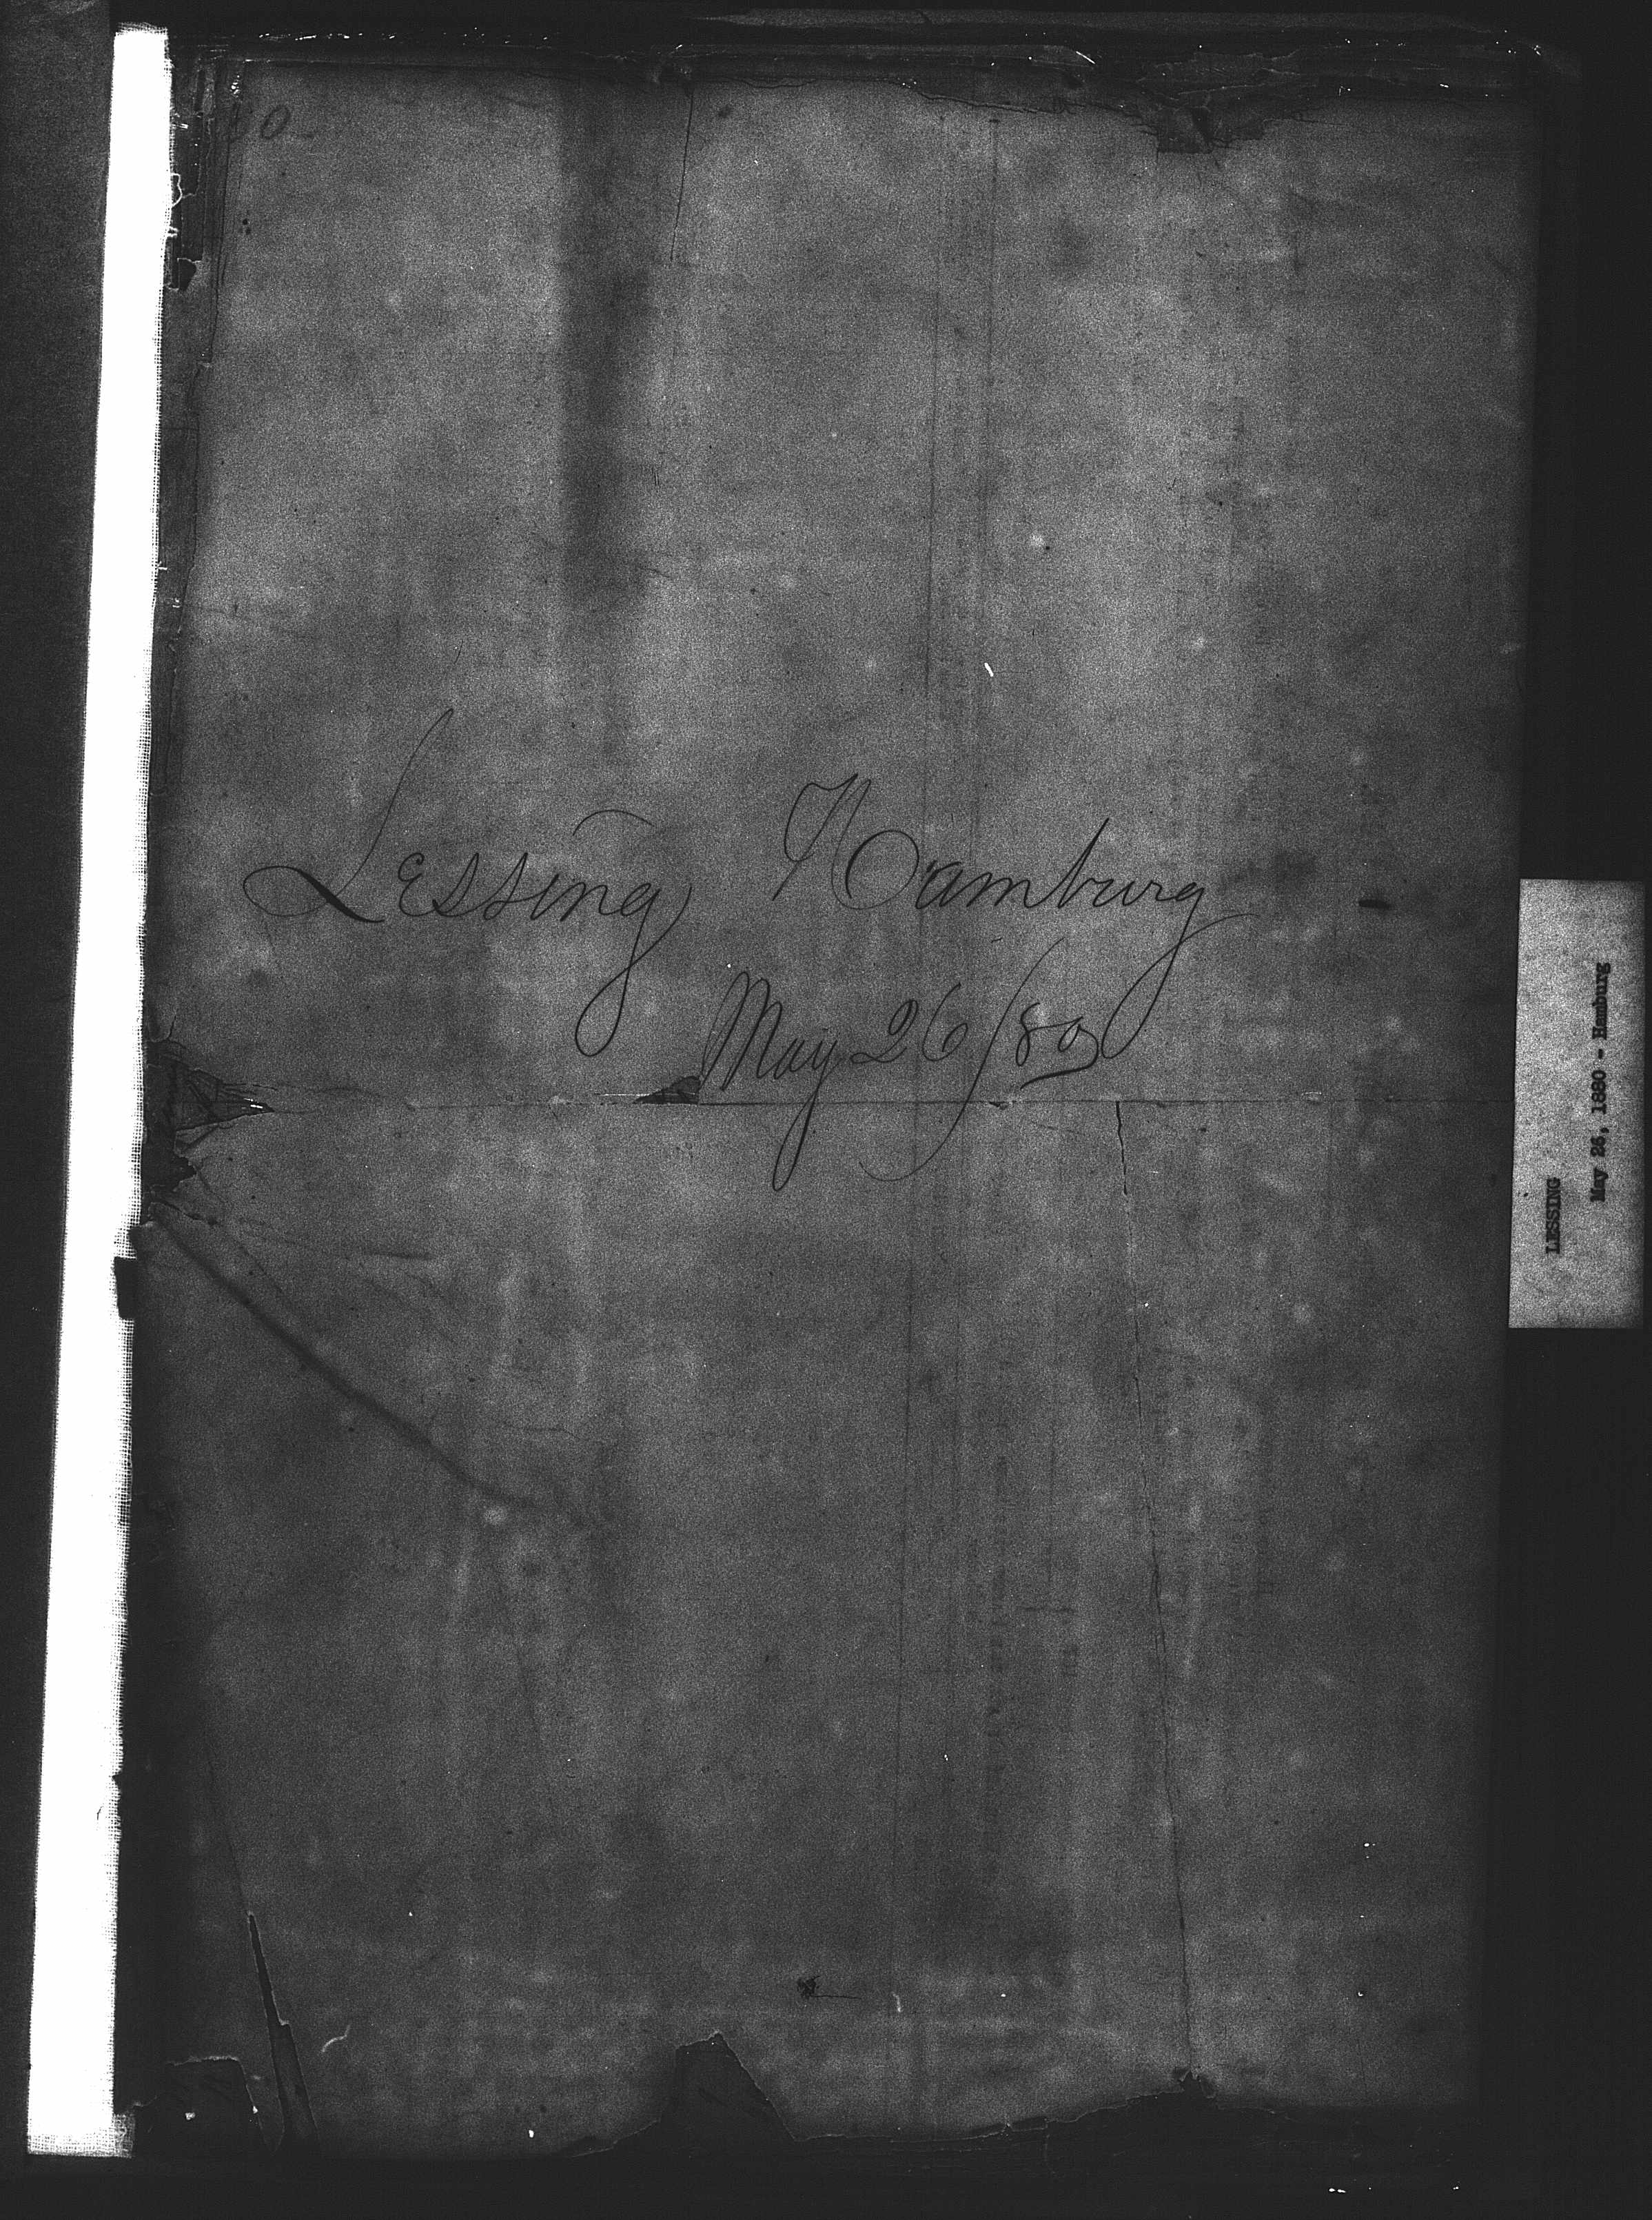 Lessing Hamburg
May 26/80
LESSING
May 26, 1880 - Hamburg